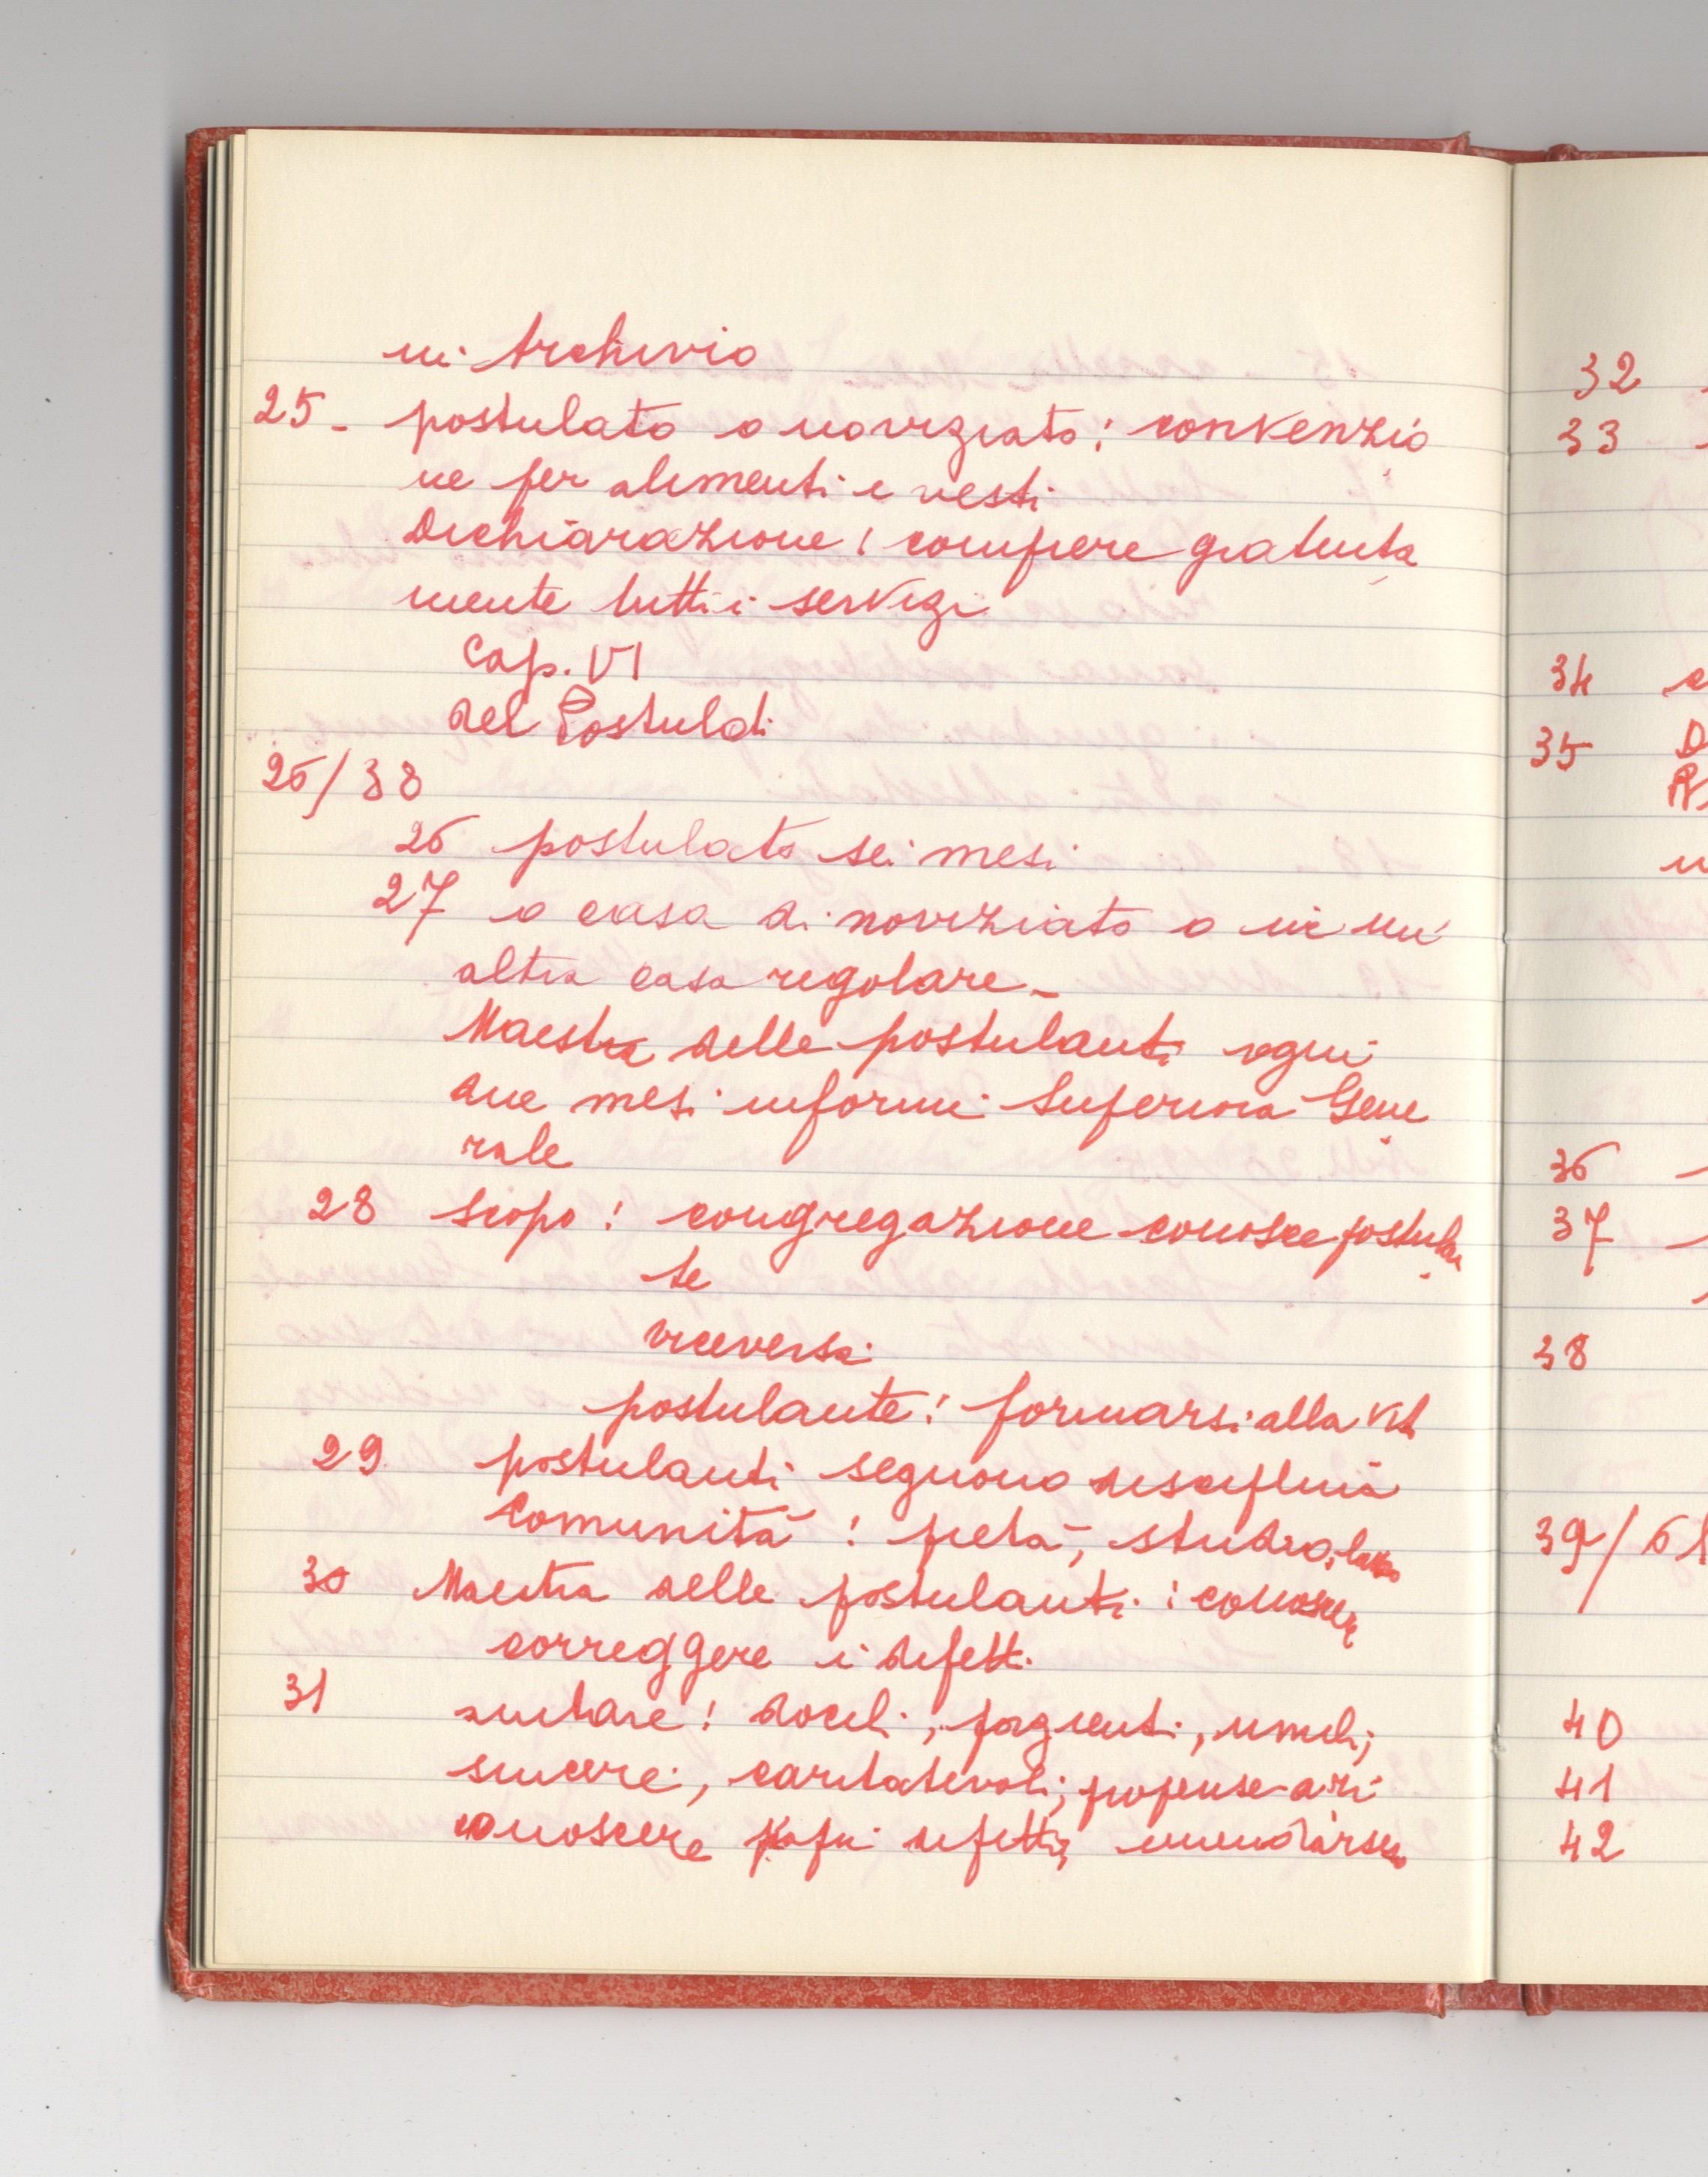 in Archivio
25 - postulato o noviziato: convenzio
ne per alimenti e vesti
Dichiarazione: compiere gratuita
mente tutti i servizi
Cap. VI
Del Postulat
26/38
26 postulato sei mesi
27 o casa di noviziato o in un'
altra casa regolare -
Maestra delle postulanti ogni
due mesi informi Superiora Gene
rale
28 Scopo: congregazione conosce postulan
te
viceversa
postulante: formarsi alla vita
29 postulanti seguono disciplina
Comunità: pietà, studio, lavoro
30 Maestra delle postulanti: conoscere
correggere i difetti
31 aiutare: docili, pazienti, umili;
sincere, caritatevoli; propense a ri
conoscere propri difetti, emendarsi
32
33
34
35
36
37
38
39/61
40
41
42